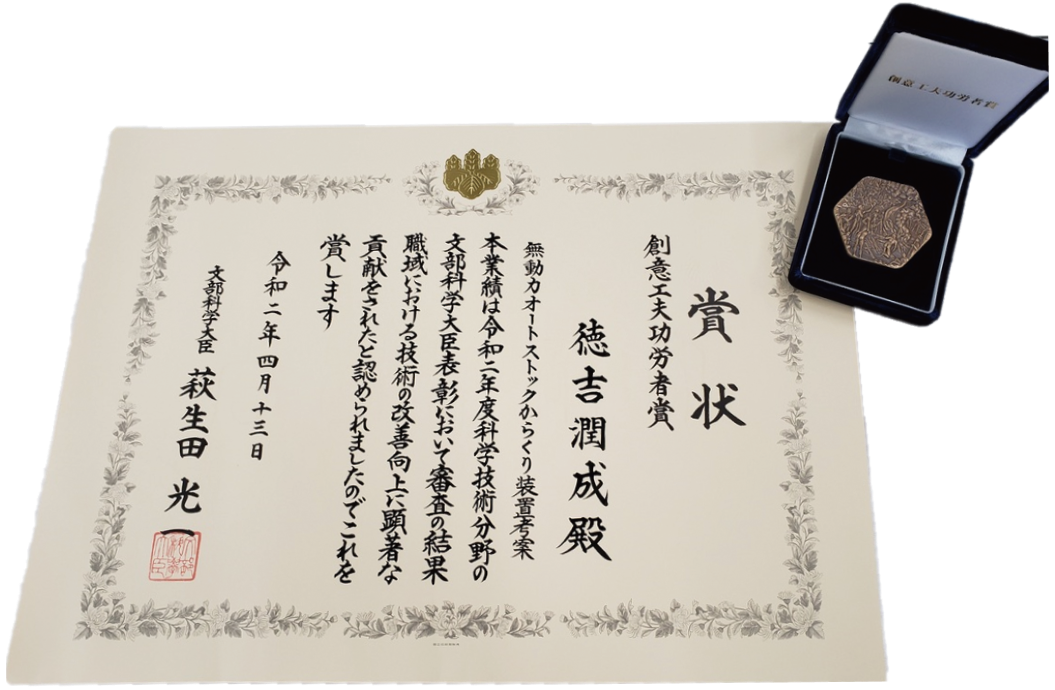 創意工夫功労者賞
賞状
創意工夫功労者賞
徳吉潤成殿
無動力オートストックからくり装置考案
本業績は令和二年度科学技術分野の
文部科学大臣表彰において審査の結果
職域における技術の改善向上に顕著な
貢献をされたと認められましたのでこれを
賞します
令和二年四月十三日
文部科学大臣 萩生田光一